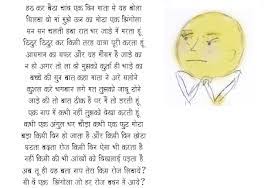 हठ कर बैठा चांद एक दिन माता से यह बोला
सिलवा दो मां मुझे ऊन का मोटा एक झिंगोला
सन सन चलती हवा रात भर जाड़े में मरता हूं
ठिठुर ठिठुर कर किसी तरह यात्रा पूरी करता हूं
आसमान का सफर और यह मौसम है जाड़े का
न हो अगर तो ला दो मुझको कुर्ता ही भाड़े का
बच्चे की सुन बात कहा माता ने अरे सलोने
कुशल करे भगवान लगे मत तुझको जादू टोने
जाड़े की तो बात ठीक है पर मैं तो डरती हूं
एक नाप में कभी नहीं तुझको देखा करती हूं
कभी एक अंगुल भर चौड़ा कभी एक फुट मोटा
बड़ा किसी दिन हो जाता है और किसी दिन छोटा
घटता बढ़ता रोज किसी दिन ऐसा भी करता है
नहीं किसी की भी आंखों को दिखलाई पड़ता है
अब तू ही यह बता नाप तेरा किस रोज लिवायें
सी दें एक झिंगोला जो हर रोज बदन में आये?